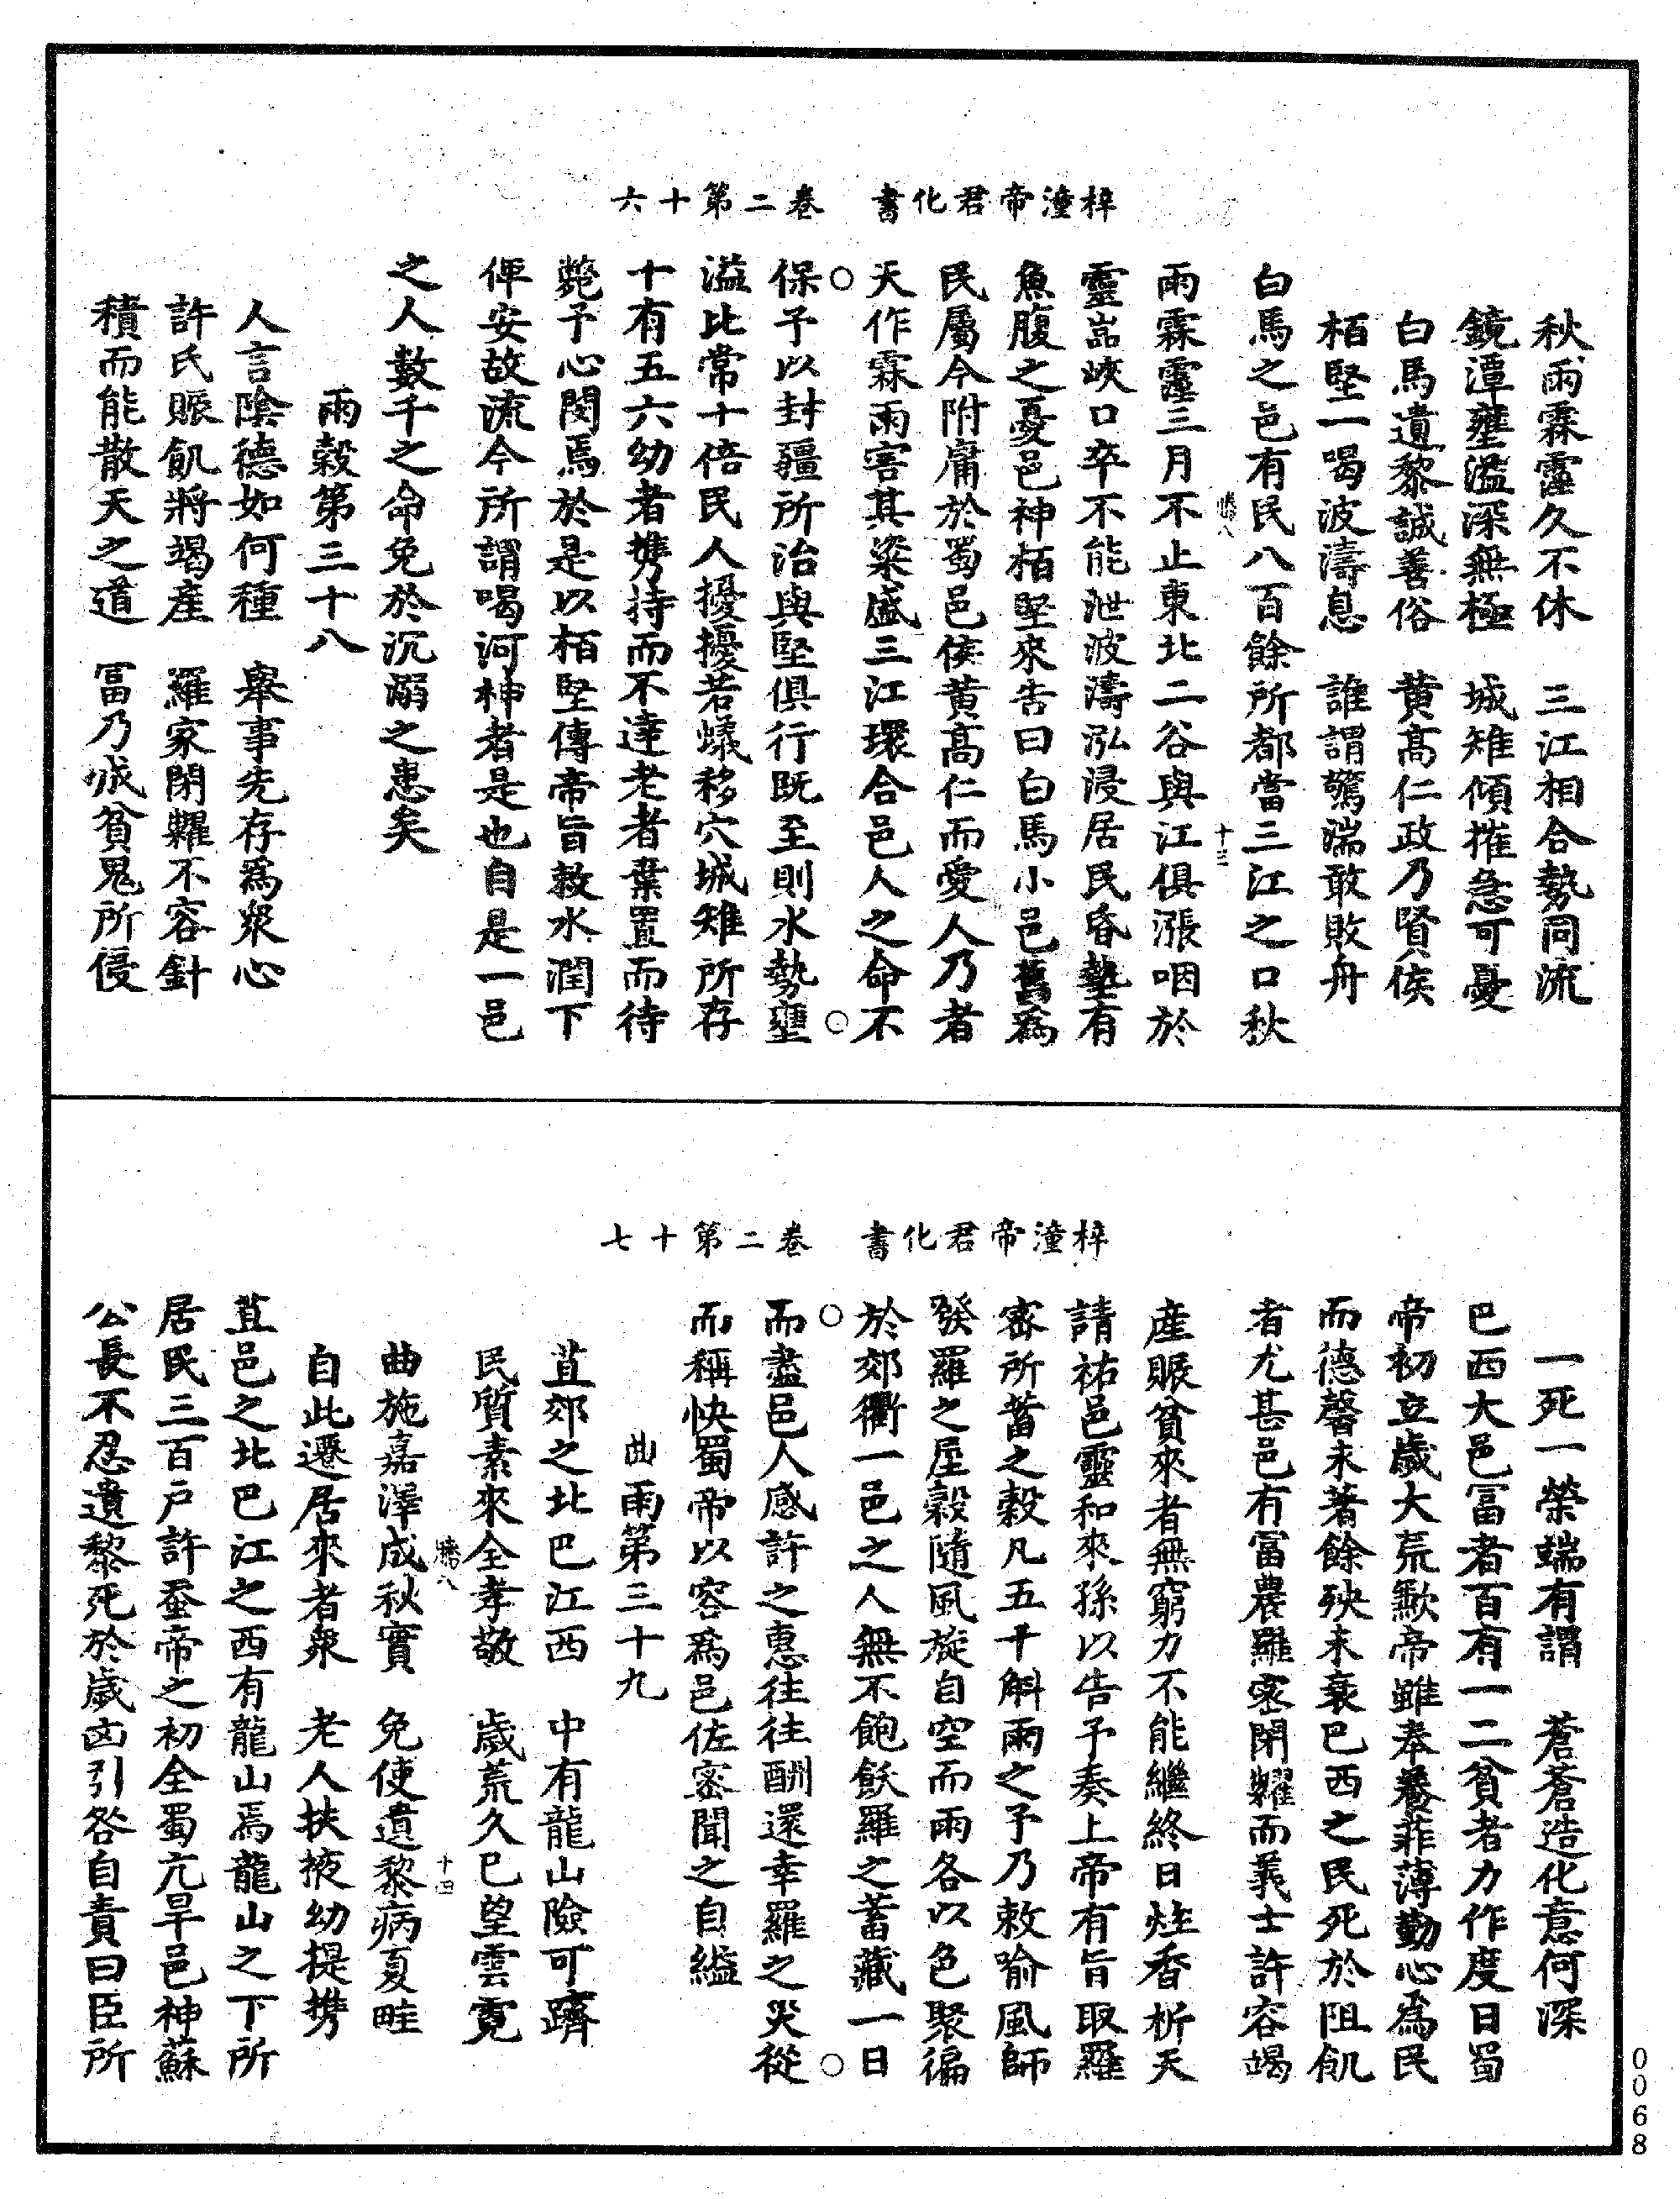 梓潼帝君化書　卷二第十六
秋雨霖霪久不休　三江相合勢同流
鏡潭壅溢深無極　城雉傾摧急可憂
白馬遺黎誠善俗　黃高仁政乃賢侯
栢堅一喝波濤息　誰謂驚湍敢敗舟
白馬之邑有民八百餘所都當三江之口秋
騰八　十三
雨霖霪三月不止東北二谷與江俱漲咽於
靈嵓峽口卒不能泄波濤泓浸居民昏墊有
魚腹之憂邑神栢堅來告曰白馬小邑舊爲
民屬今附庸於蜀邑侯黃高仁而愛人乃者
天作霖雨害其粢盛三江環合邑人之命不
保予以封疆所治與堅俱行旣至則水勢壅
溢比常十倍民人擾擾若蟻移穴城雉所存
十有五六幼者携持而不逹老者棄置而待
斃予心閔焉於是以栢堅傳帝旨敕水潤下
俾安故流今所謂喝河神者是也自是一邑
之人數千之命免於沉溺之患矣
雨穀第三十八
人言陰德如何種　舉事先存爲衆心
許氏賑飢將竭產　羅家閉糶不容針
積而能散天之道　富乃成貧鬼所侵
梓潼帝君化書　卷二第十七
一死一榮端有謂　蒼蒼造化意何深
巴西大邑富者百有一二貧者力作度日蜀
帝初立歲大荒歉帝雖奉養菲薄勤心爲民
而德馨未著餘殃未衰巴西之民死於阻飢
者尤甚邑有富農羅密閉糶而義士許容竭
產賑貧來者無窮力不能繼終日炷香析天
請祐邑靈和來孫以告予奏上帝有旨取羅
密所蓄之穀凡五千斛雨之予乃敕喻風師
發羅之屋穀隨風旋自空而雨各以色聚徧
於郊衢一邑之人無不飽飫羅之蓄藏一日
而盡邑人感許之惠往往酬還幸羅之災從
而稱快蜀帝以容爲邑佐密聞之自縊
曲雨第三十九
苴郊之北巴江西　中有龍山險可躋
民質素來全孝敬　歲荒久已望雲霓
騰八　十四
曲施嘉澤成秋實　免使遺黎病夏畦
自此遷居來者衆　老人扶掖幼提携
苴邑之北巴江之西有龍山焉龍山之下所
居民三百戶許蚕帝之初全蜀亢旱邑神蘇
公長不忍遺黎死於歲凶引咎自責曰臣所
0068